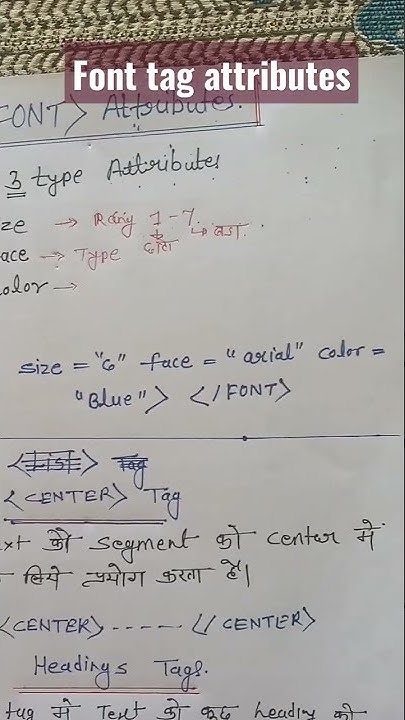 Font tag attributes
FONT> Attributes.
3 type Attributes
ze → Rang 1-7
छोटा ↳ बडा
ace → Type
olor →
size = "6" face = "arial" color =
"Blue"> </FONT>
Tag
<CENTER> Tag
xt को segment को center में
लिये प्रयोग करता है।
<CENTER> ----- </ CENTER>
Headings Tags.
tag में Text को कुछ heading को